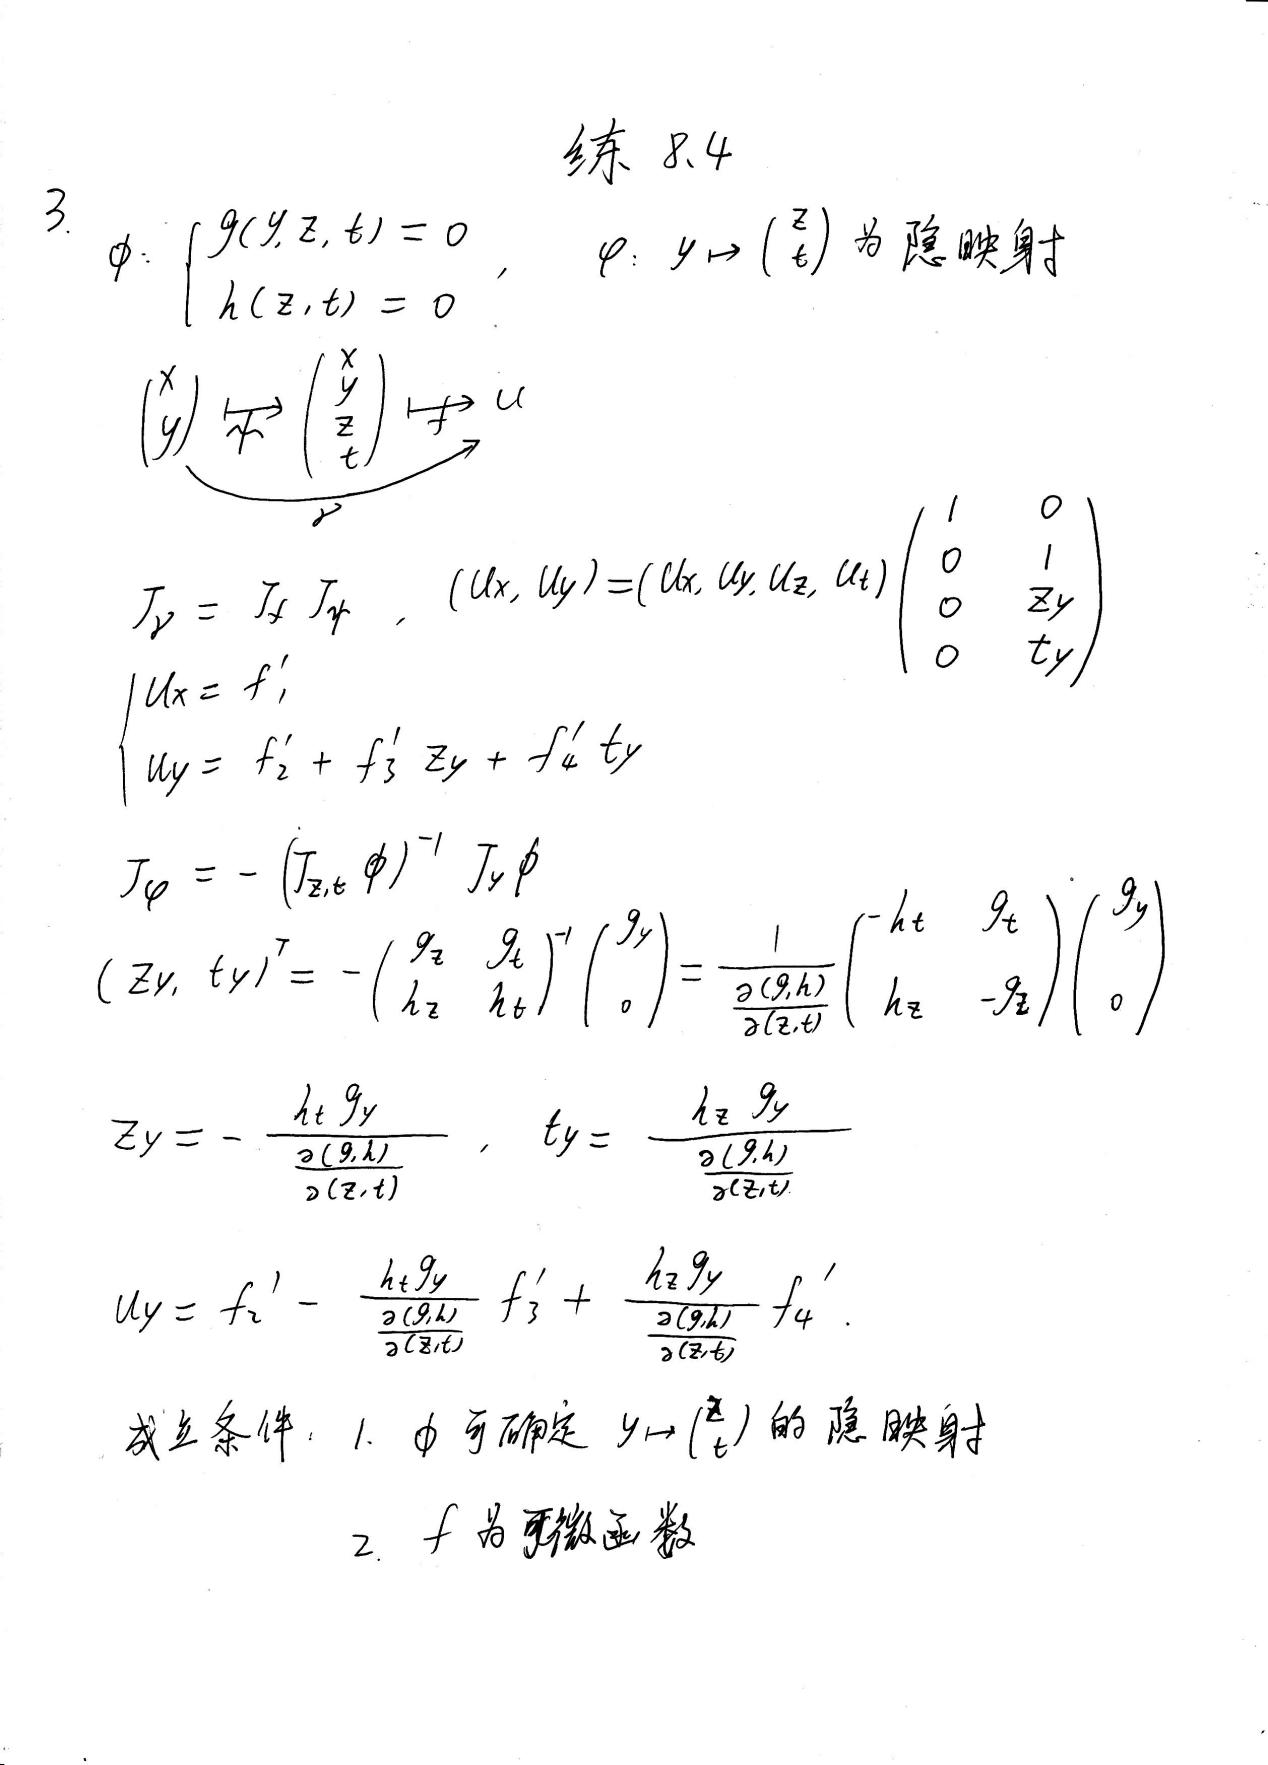 练 8.4
3. φ: { g(y, z, t) = 0 , h(z, t) = 0 , φ: y ↦ (z t) 为隐映射
(x y) ↦ψ (x y z t) ↦f u
γ
J_γ = J_f J_ψ , (u_x, u_y) = (u_x, u_y, u_z, u_t) (1 0 ; 0 1 ; 0 z_y ; 0 t_y)
{ u_x = f'_1
u_y = f'_2 + f'_3 z_y + f'_4 t_y
J_φ = - (J_{z,t} φ)^{-1} J_y φ
(z_y, t_y)^T = - (g_z g_t ; h_z h_t)^{-1} (g_y ; 0) = 1 / (∂(g,h)/∂(z,t)) (-h_t g_t ; h_z -g_z) (g_y ; 0)
z_y = - h_t g_y / (∂(g,h)/∂(z,t)) , t_y = h_z g_y / (∂(g,h)/∂(z,t))
u_y = f_2' - h_t g_y / (∂(g,h)/∂(z,t)) f_3' + h_z g_y / (∂(g,h)/∂(z,t)) f_4' .
成立条件: 1. φ可确定 y ↦ (z t) 的隐映射
2. f 为可微函数